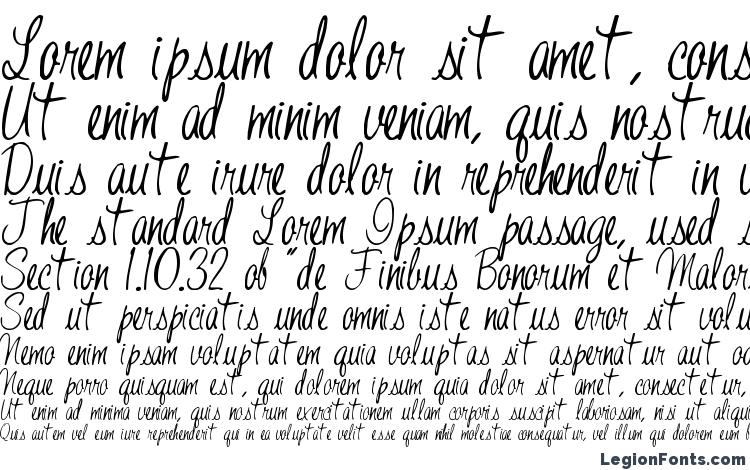 Lorem ipsum dolor sit amet, cons
Ut enim ad minim veniam, quis nostrud
Duis aute irure dolor in reprehenderit in v
The standard Lorem Ipsum passage, used s
Section 1.10.32 ob "de Finibus Bonorum et Malor
Sed ut perspiciatis unde omnis iste natus error sit volu
Nemo enim ipsam voluptatem quia voluptas sit aspernatur aut od
Neque porro quisquam est, qui dolorem ipsum quia dolor sit amet, consectetur,
Ut enim ad minima veniam, quis nostrum exercitationem ullam corporis suscipit laboriosam, nisi ut aliqui
Quis autem vel eum iure reprehenderit qui in ea voluptate velit esse quam nihil molestiae consequatur, vel illum qui dolorem eum f
LegionFonts.com